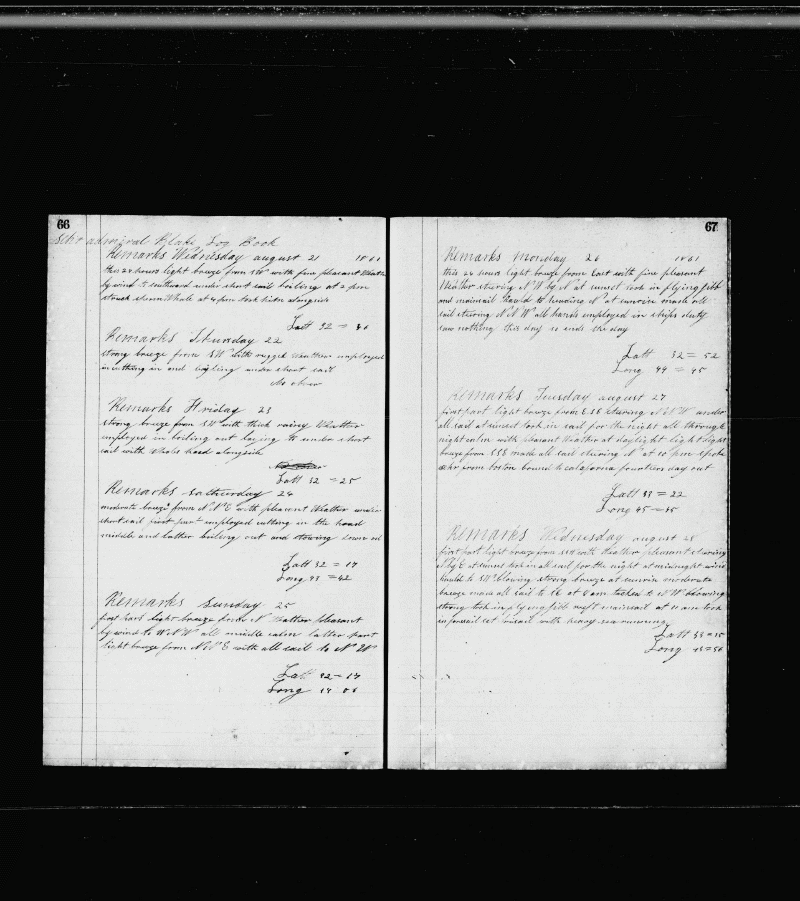 66
Schr admiral Blake Log Book
Remarks Wednesday august 21 1861
this 24 hours light breeze from SW with fine pleasant Weather
by wind to Southward under short sail boiling at 2 pm
struck Whale at 4 pm took him alongside
Latt 32 =
Remarks Thursday 22
strong breeze from SW with rugged Weather employed
in cutting in and boiling under short sail
No obser
Remarks Friday 23
strong breeze from SW with thick rainy Weather
employed in boiling out laying to under short
sail with Whales head alongside
Latt 32 = 25
Remarks satturday 24
moderate breeze from N N E with pleasent Weather under
short sail first part employed cutting in the head
middle and latter boiling out and stowing down oil
Latt 32 = 17
Long 43 = 42
Remarks sunday 25
first part light breeze from N Weather pleasant
by wind to W N W all middle calm latter part
light breeze from N N E with all sail to N W
Latt 32 = 17
Long
67
Remarks monday 26 1861
this 24 hours light breeze from East with fine pleasant
Weather stering N W by N at sunset took in flying jibb
and mainsail hawld to heading N at sunrise made all
sail stering N N W all hands employed in ships duty
saw nothing this day so ends the day
Latt 32 = 52
Long 44 = 45
Remarks Tuesday august 27
first part light breeze from E S E stering N N W under
all sail at sunset took in sail for the night all through
night calm with pleasant Weather at daylight light light
breeze from SSE made all sail stering N at 10 pm spoke
from boston bound to calafornia fourteen day out
Latt 33 = 22
Long 45 = 45
Remarks Wednesday august 28
first part light breeze from SSW with Weather pleasant stering
N by E at sunset took in all sail for the night at midnight wind
hawld to SW blowing strong breeze at sunrise moderate
breeze made all sail to at 8 am tacked to NW blowing
strong took in flying jibb reeft mainsail at 11 am took
in foresail set trisail with heavy sea running
Latt 33 = 15
Long 43 = 56